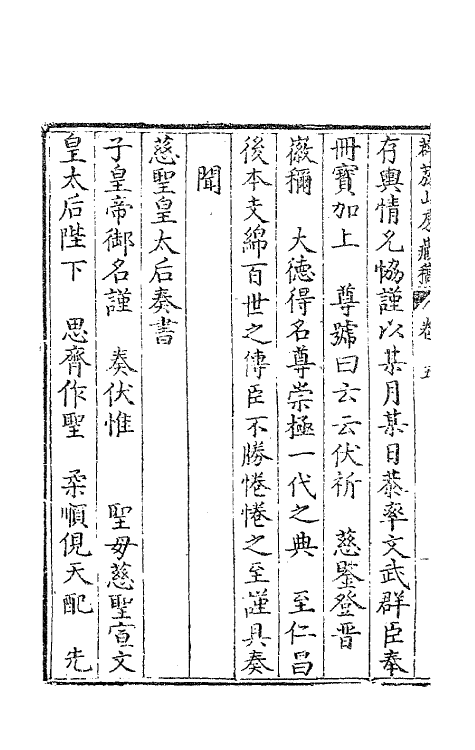 山房藏稿 卷五
存輿情允協謹以某月某日恭率文武群臣奉
冊寶加上 尊號曰云云伏祈 慈鑒登晉
徽稱 大德得名尊崇極一代之典 至仁昌
後本支綿百世之傳臣不勝惓惓之至謹具奏
聞
慈聖皇太后奏書
子皇帝御名謹 奏伏惟 聖母慈聖宣文
皇太后陛下 思齊作聖 柔順俔天配 先